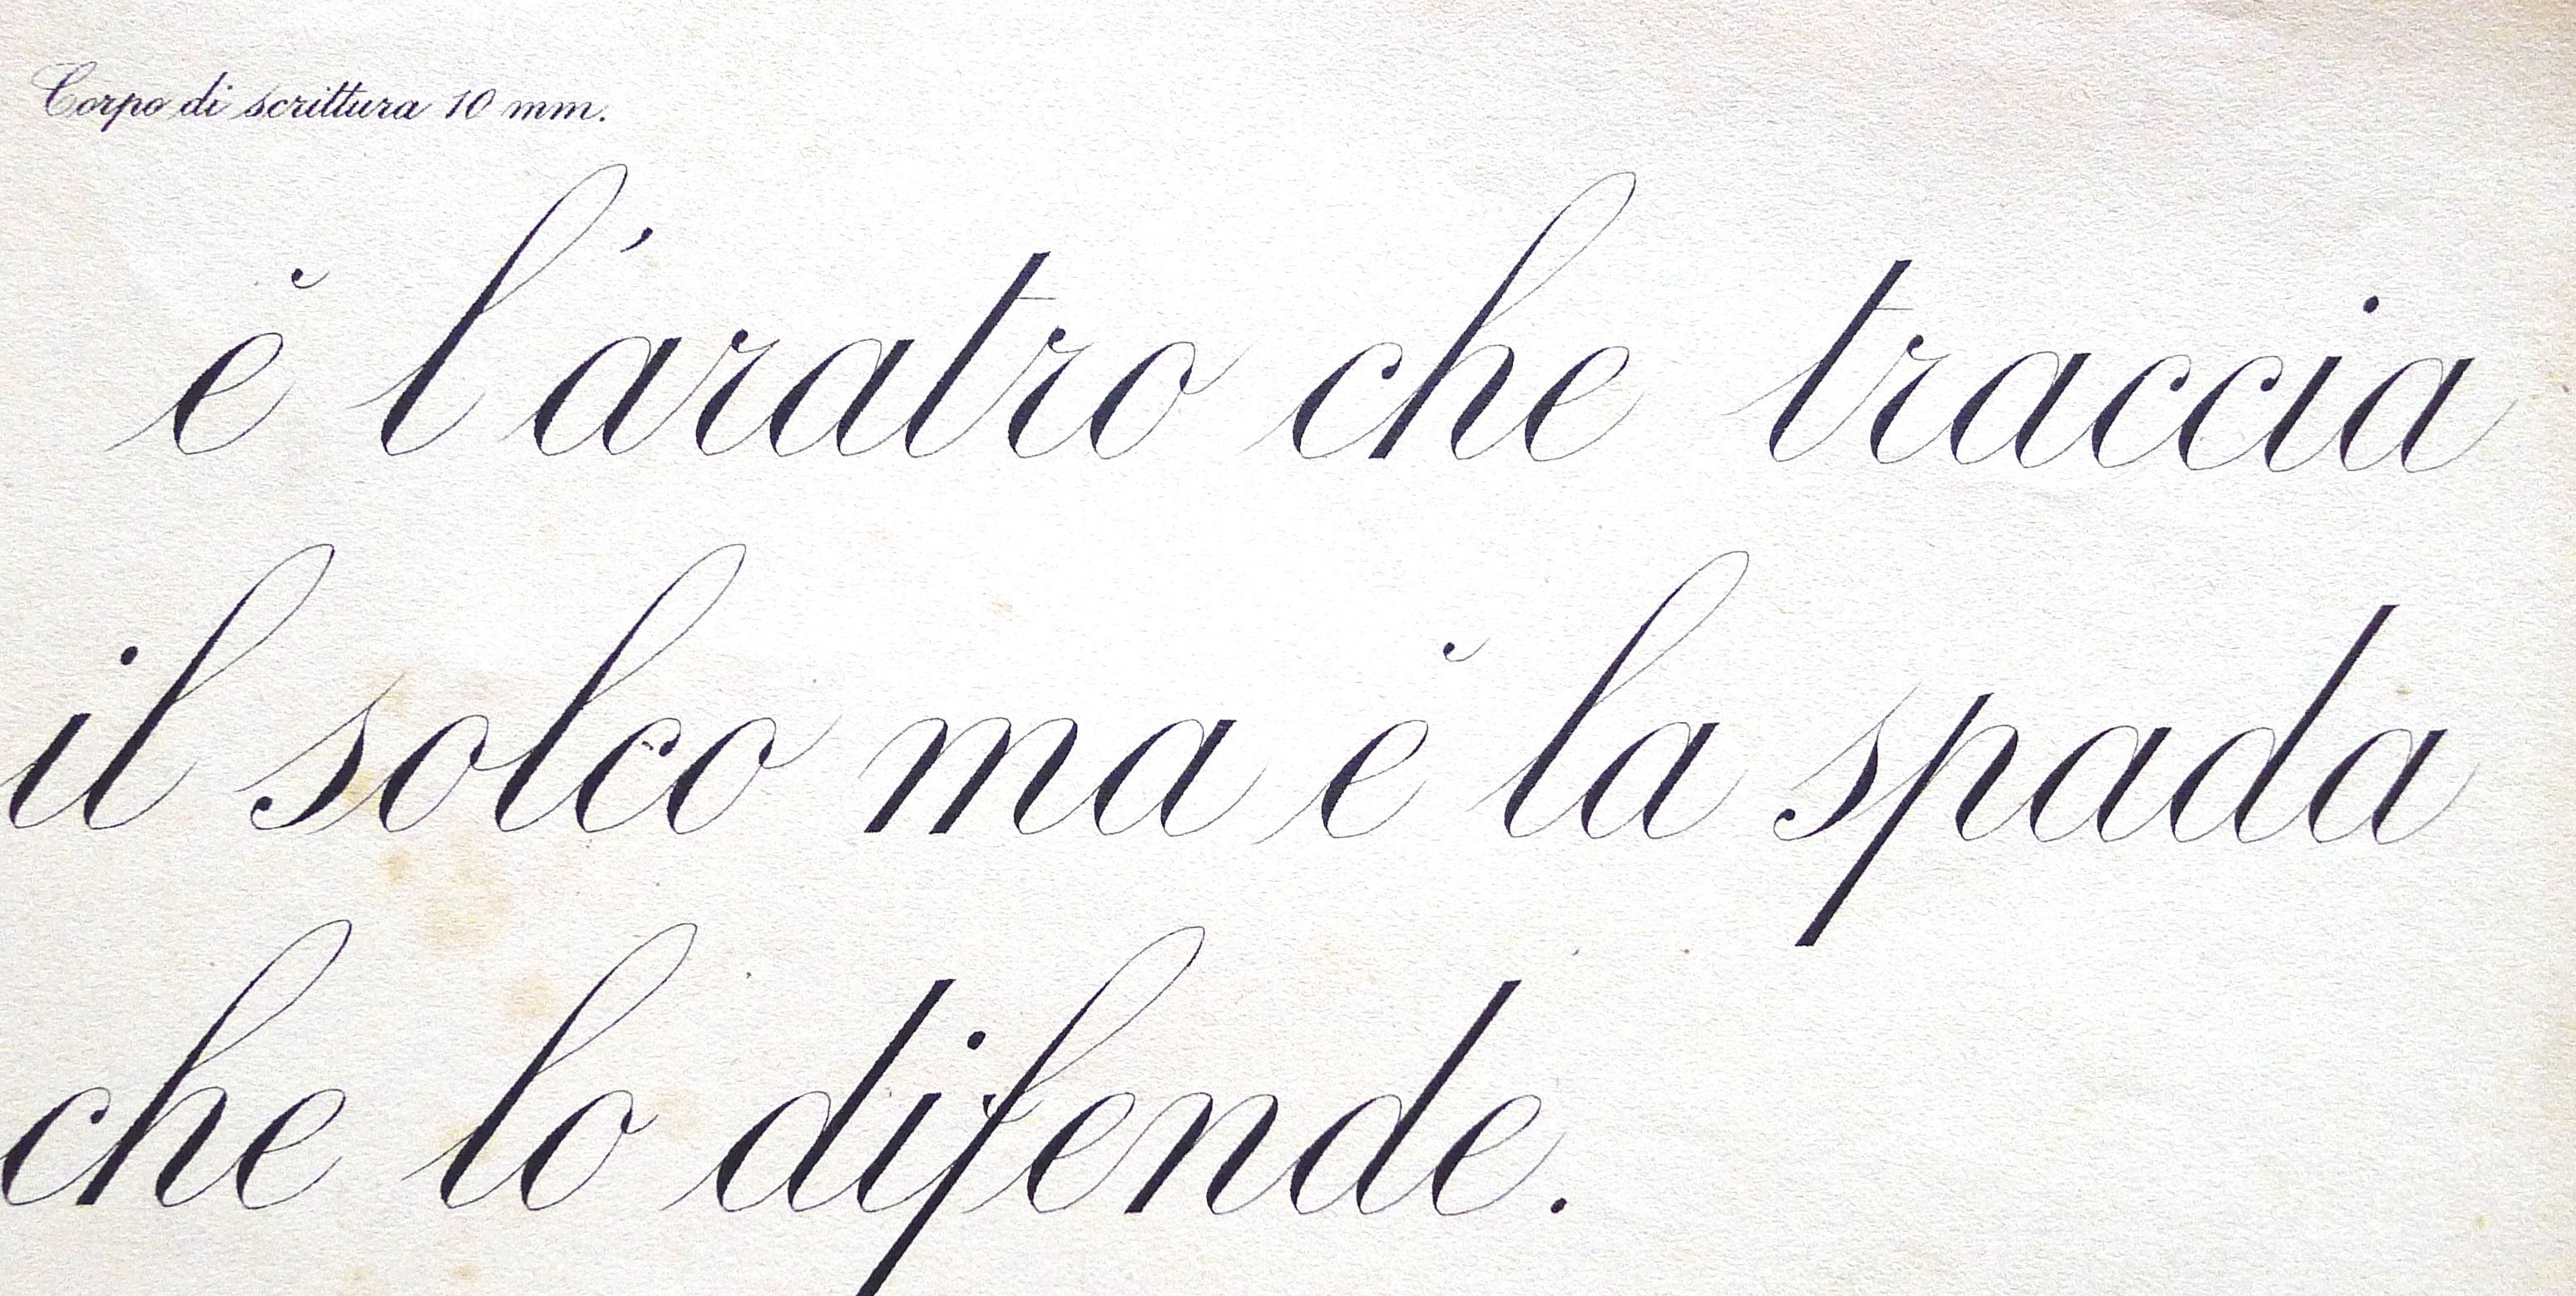 Corpo di scrittura 10 mm.
è l'aratro che traccia
il solco ma è la spada
che lo difende.